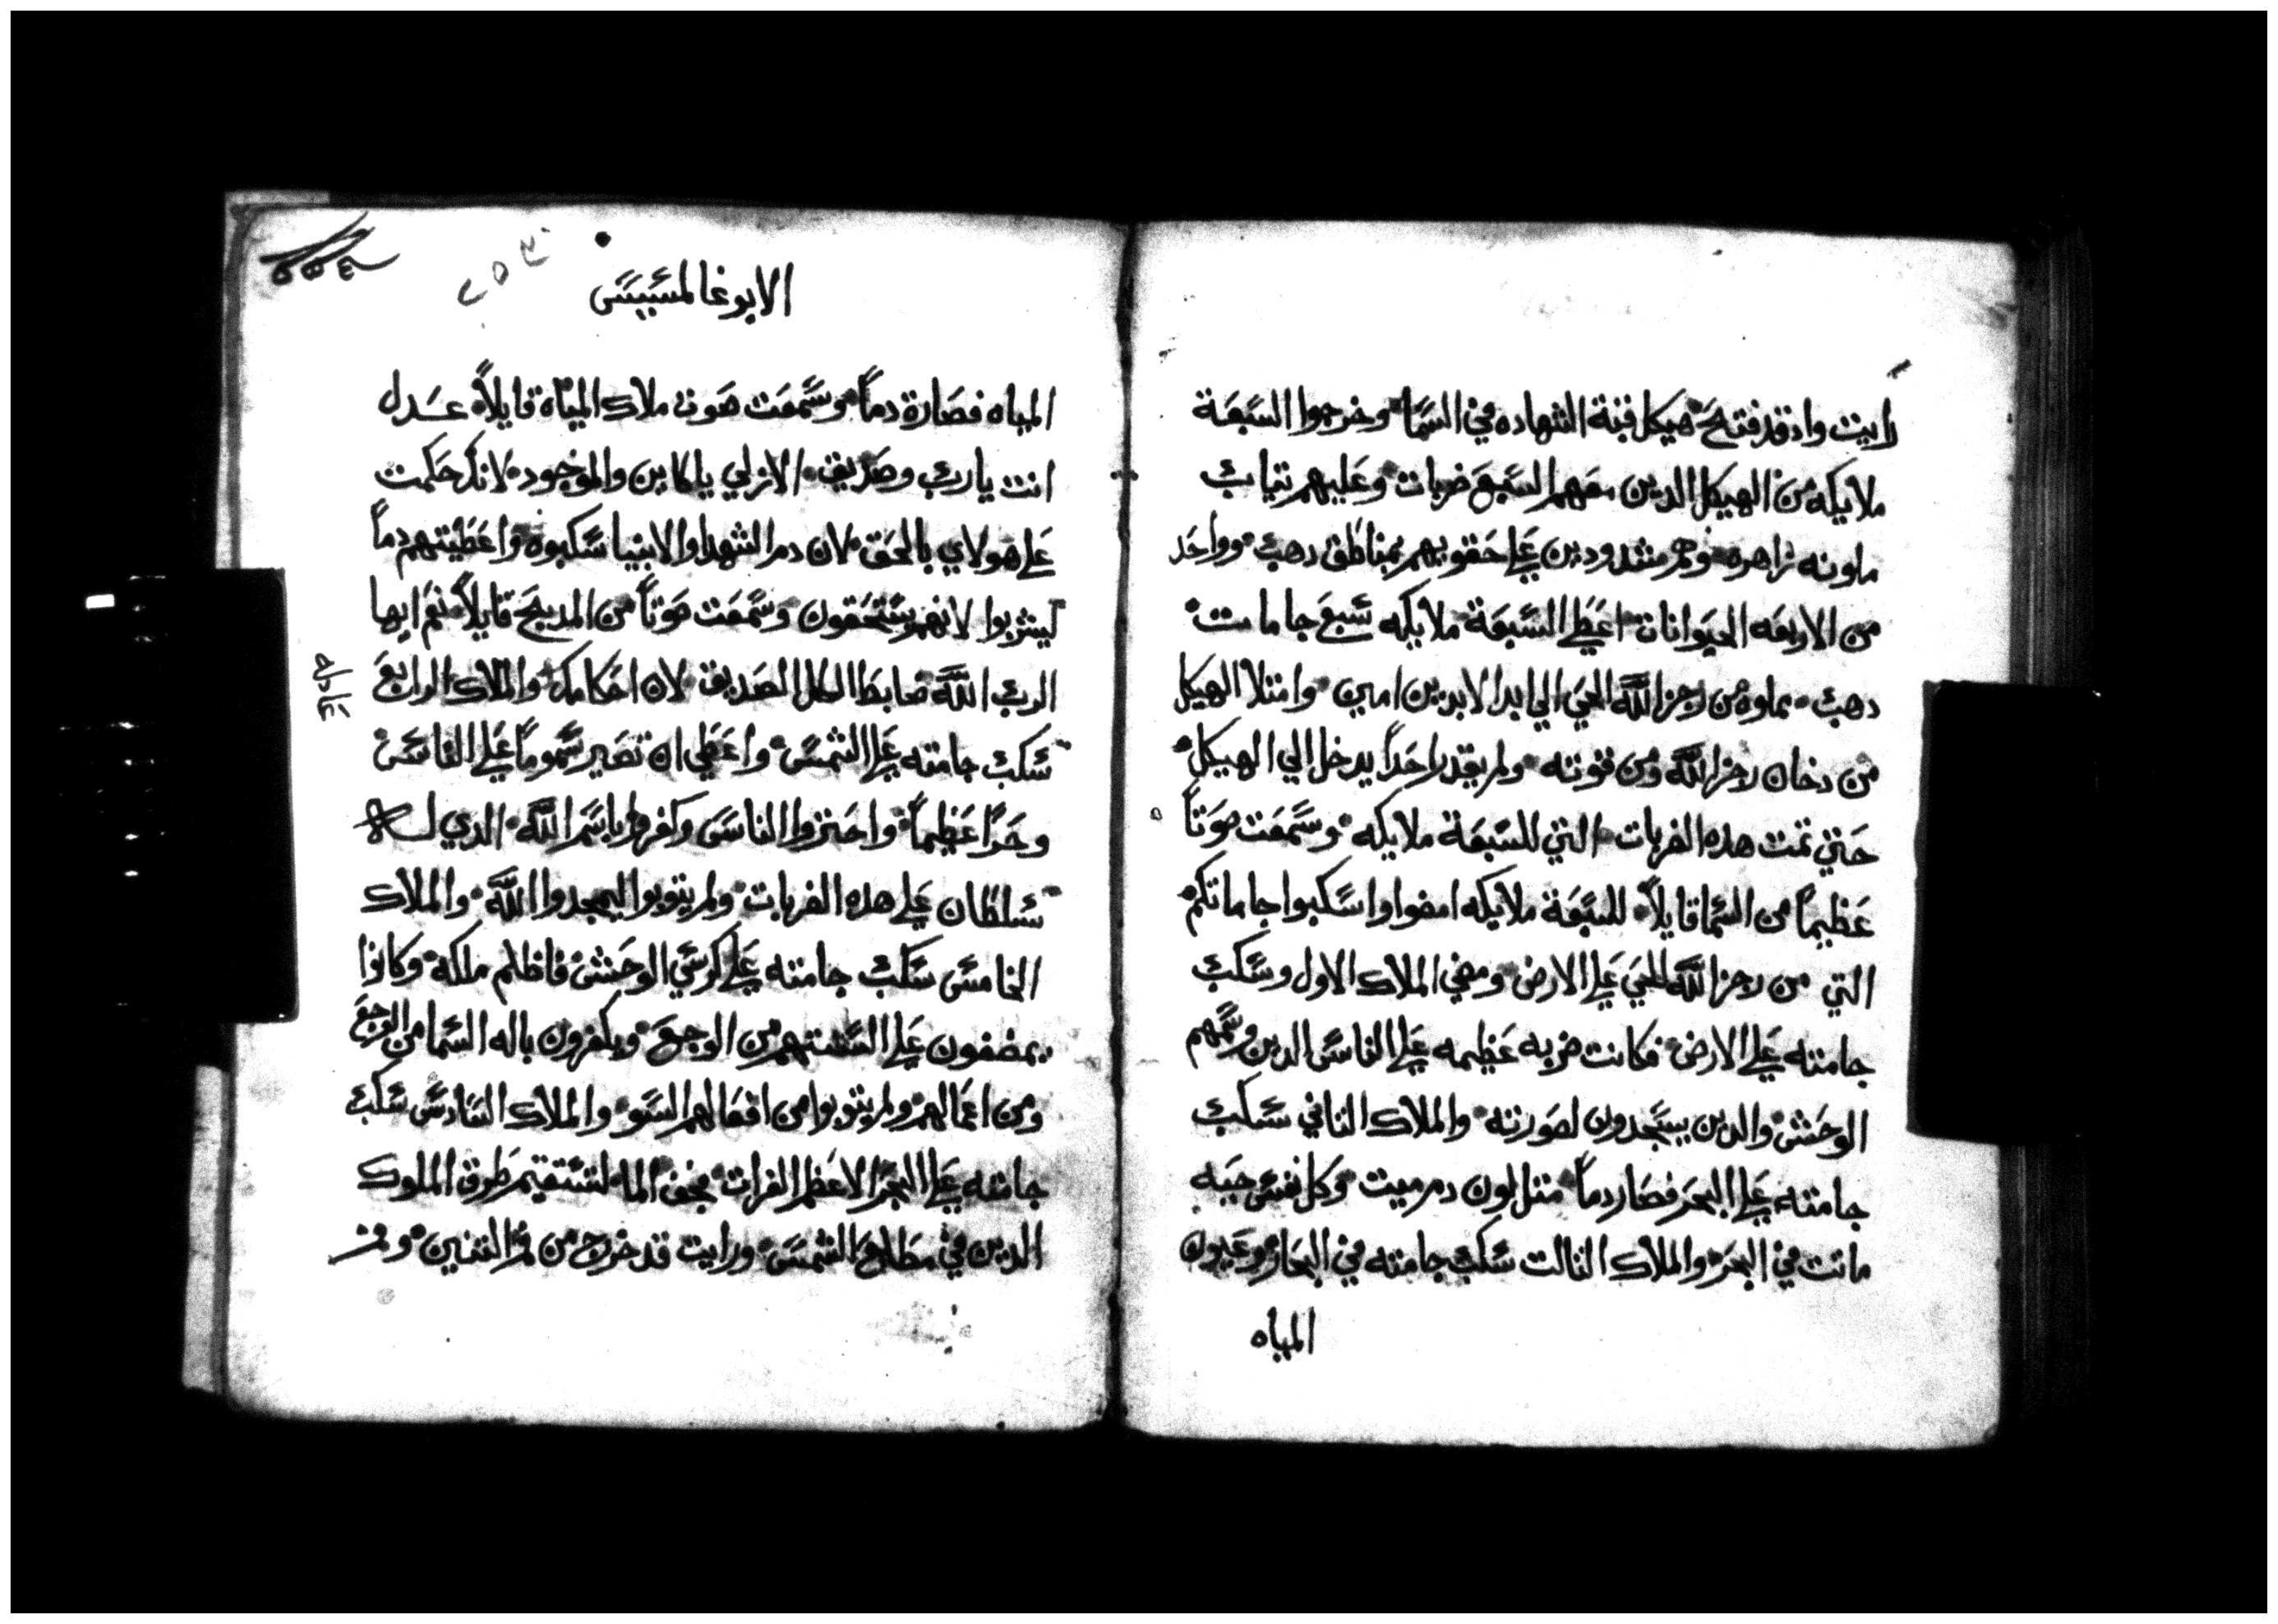 رايت واذ قد فتح هيكل قبة الشهاده في السما وخرجوا السبعة
ملايكه من الهيكل الدين معهم السبع ضربات وعليهم تياب
ملونه زاهره وهم مشدودين علي حقويهم بمناطق دهب وواحد
من الاربعه الحيوانات اعطي السبعة ملايكه سبع جامات
دهب مملوه من رجز الله الحي الي ابد الابدين امين وامتلا الهيكل
من دخان رجز الله ومن قوته ولم يقدر احداً يدخل الي الهيكل
حتي تمت هده الضربات التي للسبعة ملايكه وسمعت صوتاً
عظيماً من السما قايلاً للسبعة ملايكه امضوا واسكبوا جاماتكم
التي من رجز الله الحي علي الارض ومضي الملاك الاول وسكب
جامته علي الارض فكانت ضربه عظيمه علي الناس الدين وسمهم
الوحش والدين يسجدون لصورته والملاك التاني سكب
جامته علي البحر فصار دماً متل لون دم ميت وكل نفس حيه
ماتت في البحر والملاك التالت سكب جامته في البحار وعيون
المياه
الابوغالمسيس
المياه فصارة دماً وسمعت صوت ملاك المياه قايلاً عدل
انت يارب وصديق الازلي ياكاين والموجود لانك حكمت
علي هولاي بالحق لان دم الشهدا والانبيا سكبوه واعطيتهم دماً
ليشربوا لانهم يستحقون وسمعت صوتاً من المدبح قايلاً نعم ايها
الرب الله ضابط الكل الصديق لان احكامك والملاك الرابع
سكب جامته علي الشمس واعطي ان تصير سموماً علي الناس
وحرًا عظيماً واحترقوا الناس وكفروا باسم الله الدي له
سلطان علي هده الضربات ولم يتوبوا ليمجدوا الله والملاك
الخامس سكب جامته علي كرسي الوحش فاظلم ملكه وكانوا
يمضغون علي السنتهم من الوجع ويكفرون باله السما من الوجع
ومن اعمالهم ولم يتوبوا من افعالهم السو والملاك السادس سكب
جامته علي البحر الاعظم الفرات فجف الما لتستقيم طرق الملوك
الدين في مطالع الشمس ورايت قد خرج من فم التنين ومن